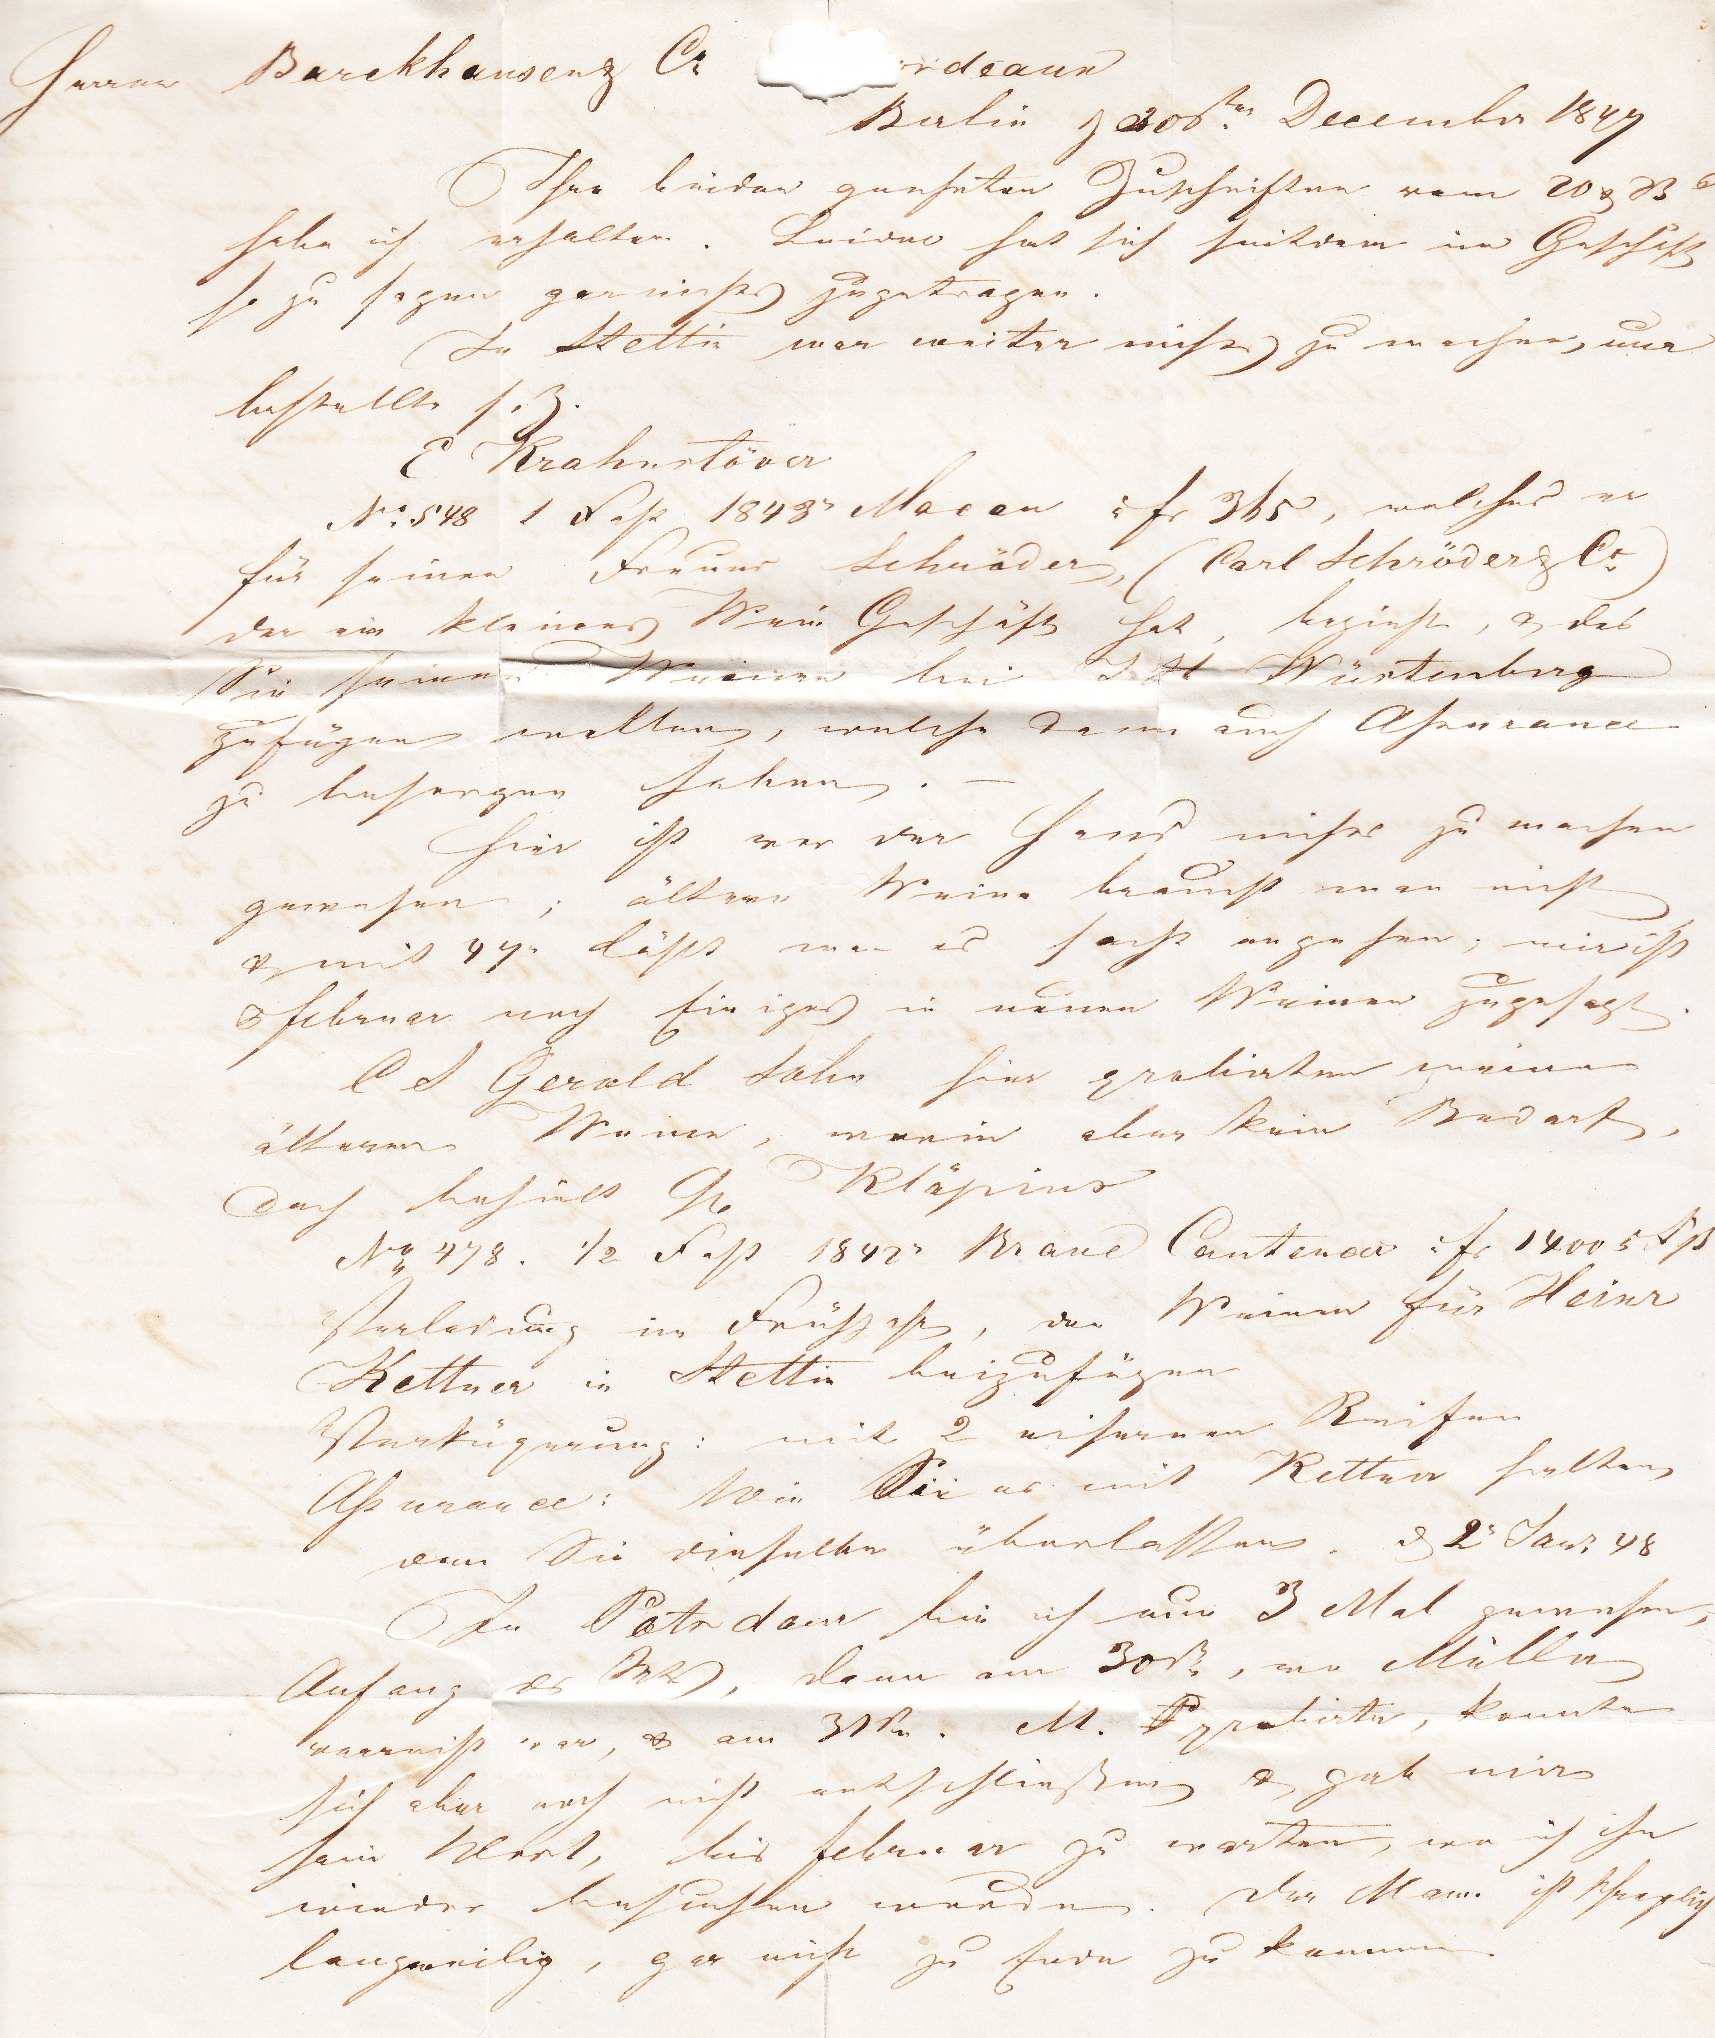 Herren Barckhausen & Co ordeaux
Berlin d 30st December 1847
Ihre beiden geehrten Zuschriften vom 20 & 23
habe ich erhalten. Leider hat sich seitdem im Geschäft
so zu sagen gar nichts zugetragen.
In Stettin war weiter nichts zu machen, nur
bestellte s. Z.
E Krahnstöver
No. 548 1 Faß 1843r Macau a fr 365, welches er
für seinen Freund Schröder, (Carl Schröder & Co)
der ein kleines Wein Geschäft hat, bezieht, & das
Sie seinen Weinen bei J H Würtenberg
zufügen wollen, welche dann auch Assurance
zu besorgen haben. —
Hier ist vor der Hand nichts zu machen
gewesen; ältere Weine braucht man nicht
& mit 47r läßt man es sacht angehen; mir ist
Februar noch Einiges in neuen Weinen zugesagt.
C S Gerold Sohn hier probirten meine
älteren Weine, worin aber kein Bedarf,
doch behielt Kläpius
No 478. 1/2 Faß 1842r Brane Cantenac a fr 1400
Verladung im Frühjahr, den Weinen für Heinr
Kettner in Stettin beizufügen
mit 2 eisernen Reifen
Assurance: Wie Sie es mit Kettner halten
Sie dieselbe überlassen. d 2r Janr 48
In Potsdam bin ich nun 3 Mal gewesen,
Anfang des Mts, dann am 30st, wo Müller
verreist war, & am 31st. M. probirte, konnte
sich aber noch nicht entschließen & gab mir
sein Wort, bis Februar zu warten, wo ich ihn
wieder besuchen werde. Der Mann ist schrecklich
langweilig, gar nicht zu Ende zu kommen.